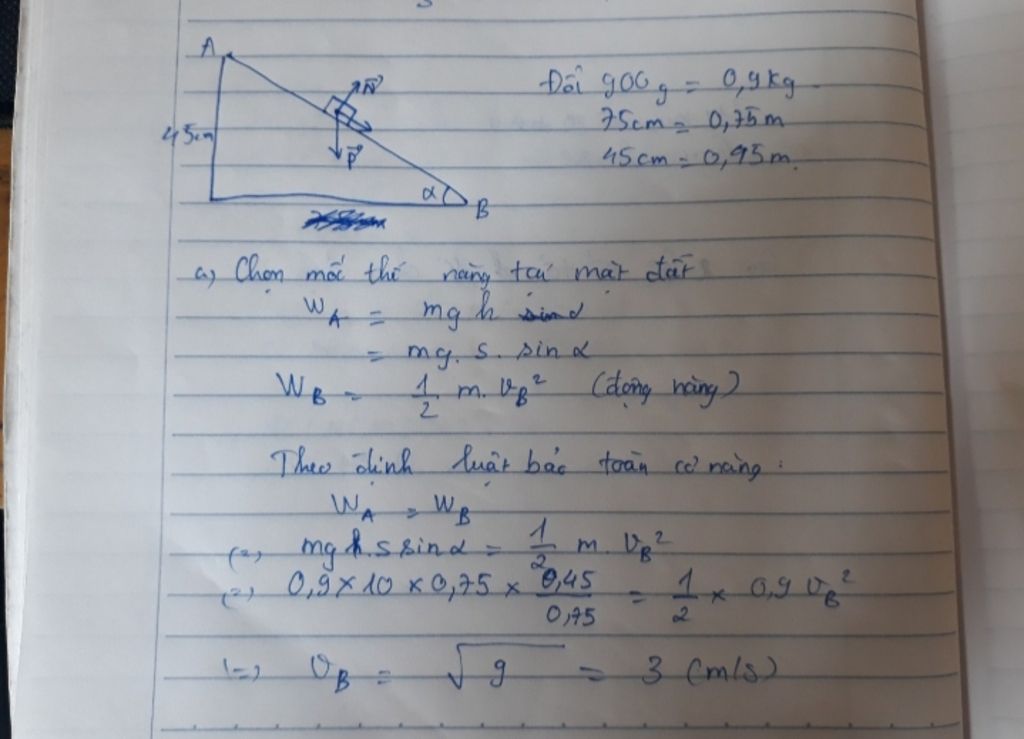 A
N
Đổi 900g = 0,9kg
75cm = 0,75m
45cm
45cm = 0,45m
P
α
B
a, Chọn mốc thế năng tại mặt đất
W_A = mgh
= mg.s.sin α
W_B = 1/2 m.v_B² (động năng)
Theo định luật bảo toàn cơ năng:
W_A = W_B
(=) mg.s sin α = 1/2 m.v_B²
(=) 0,9 × 10 × 0,75 × 0,45/0,75 = 1/2 × 0,9 v_B²
(=) v_B = √9 = 3 (m/s)